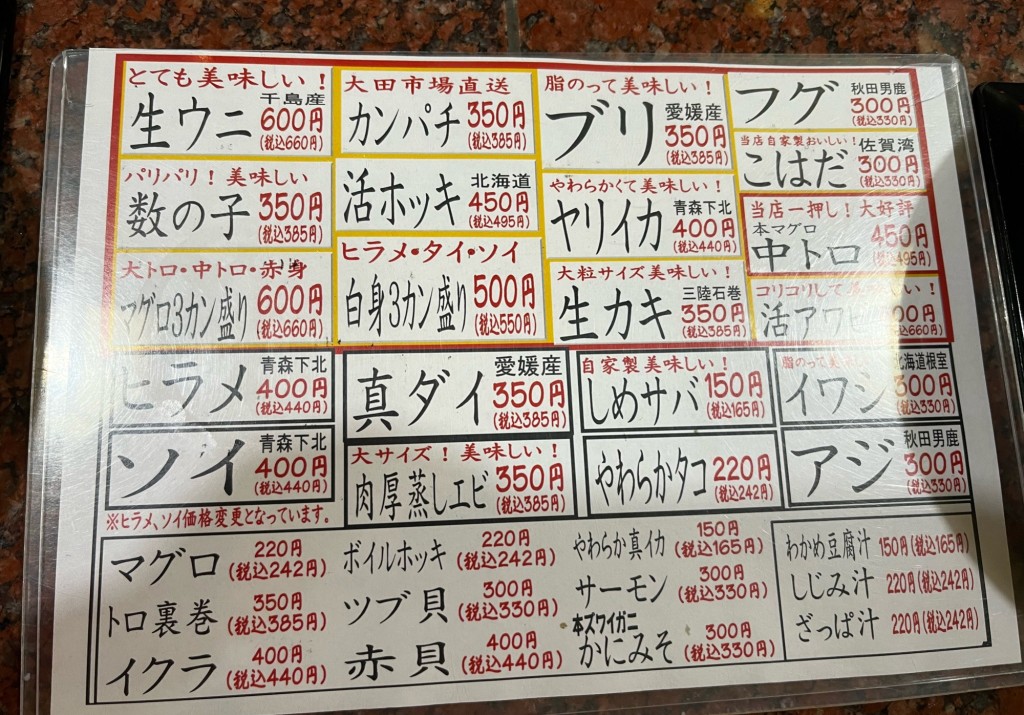 とても美味しい！
千島産
生ウニ 600円
(税込660円)
大田市場直送
カンパチ 350円
(税込385円)
脂のって美味しい！
愛媛産
ブリ 350円
(税込385円)
秋田男鹿
フグ 300円
(税込330円)
当店自家製おいしい！
佐賀湾
こはだ 300円
(税込330円)
パリパリ！美味しい
数の子 350円
(税込385円)
北海道
活ホッキ 450円
(税込495円)
やわらかくて美味しい！
青森下北
ヤリイカ 400円
(税込440円)
当店一押し！大好評
本マグロ
中トロ 450円
(税込495円)
大トロ・中トロ・赤身
マグロ3カン盛り 600円
(税込660円)
ヒラメ・タイ・ソイ
白身3カン盛り 500円
(税込550円)
大粒サイズ美味しい！
三陸石巻
生カキ 350円
(税込385円)
コリコリして
活アワビ
青森下北
ヒラメ 400円
(税込440円)
愛媛産
真ダイ 350円
(税込385円)
自家製美味しい！
しめサバ 150円
(税込165円)
脂のって美味
北海道根室
イワシ 300円
(税込330円)
青森下北
ソイ 400円
(税込440円)
※ヒラメ、ソイ価格変更となっています。
大サイズ！美味しい！
肉厚蒸しエビ 350円
(税込385円)
やわらかタコ 220円
(税込242円)
秋田男鹿
アジ 300円
(税込330円)
マグロ 220円
(税込242円)
トロ裏巻 350円
(税込385円)
イクラ 400円
(税込440円)
ボイルホッキ 220円
(税込242円)
ツブ貝 300円
(税込330円)
赤貝 400円
(税込440円)
やわらか真イカ 150円
(税込165円)
サーモン 300円
(税込330円)
本ズワイガニ
かにみそ 300円
(税込330円)
わかめ豆腐汁 150円(税込165円)
しじみ汁 220円(税込242円)
ざっぱ汁 220円(税込242円)